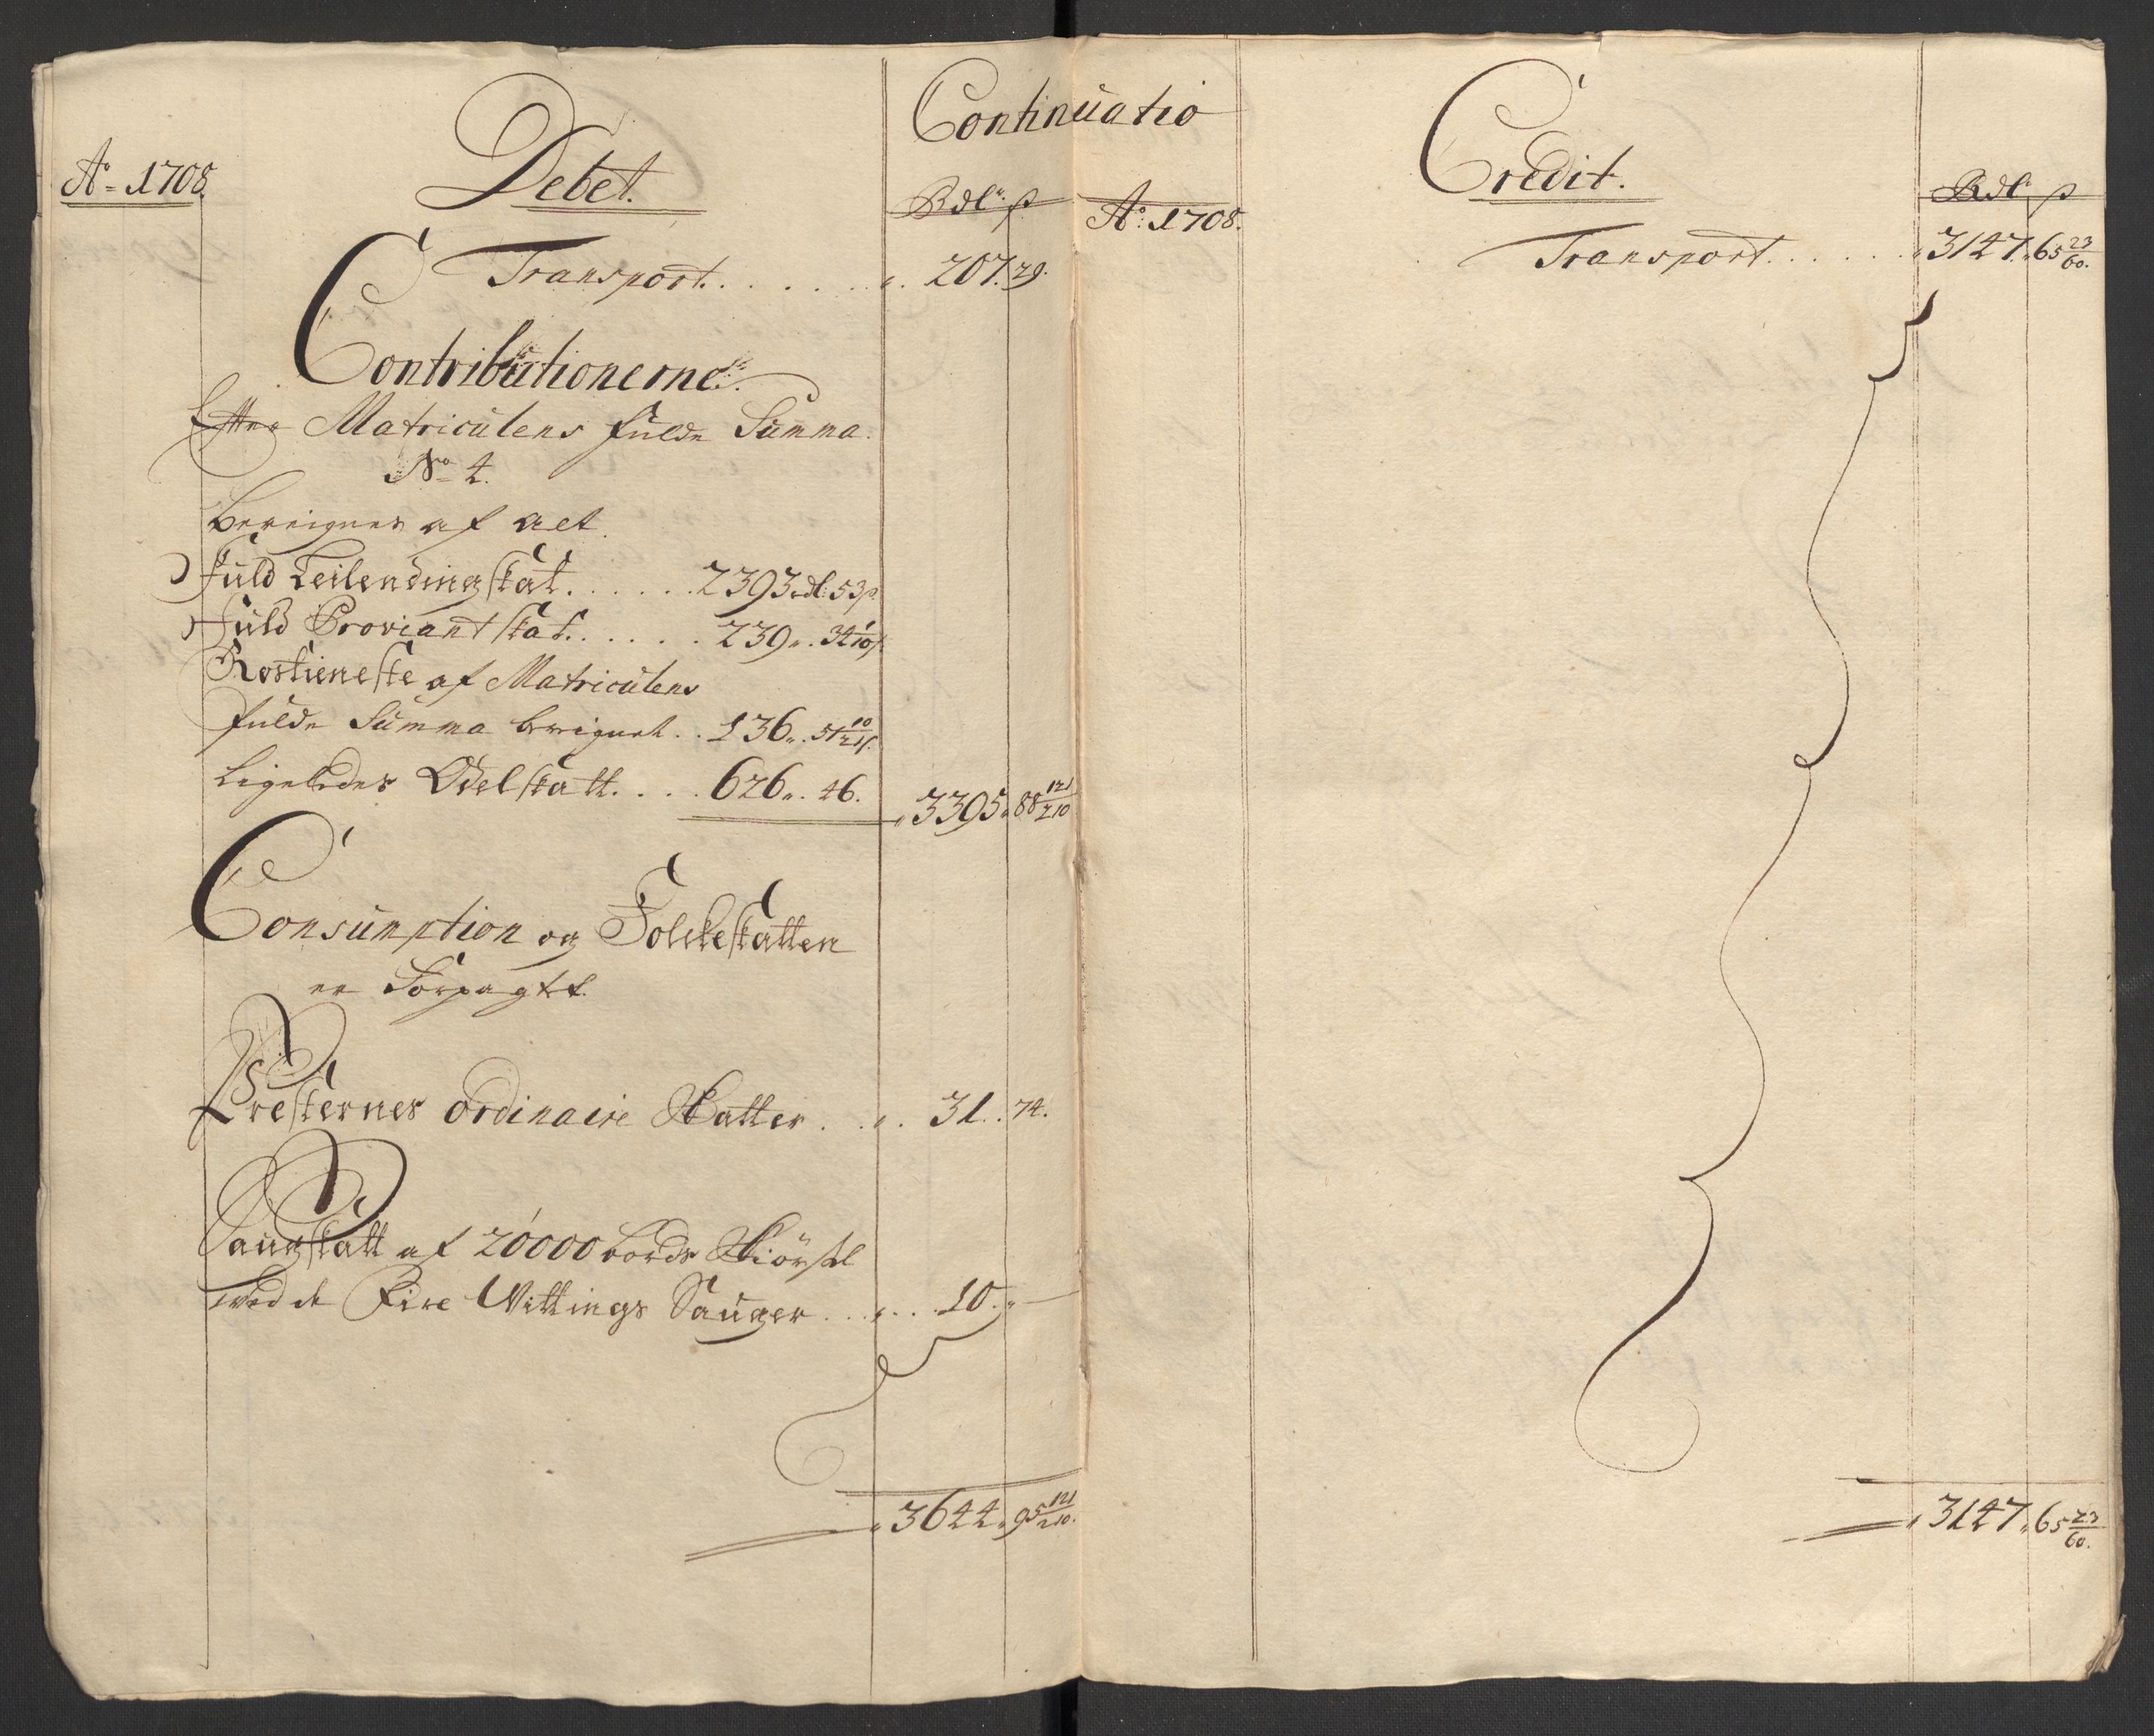 Continuatio
Ao 1708.
Debet.
Rdlr. ß
Transport. . . . . . . 207. 29.
Contributionerne
Efter Matriculens fulde Summa.
No 4.
Bereignes af alt.
Fuld Leilendingskat. . . . . . 2393 rdl: 53 ß
Fuld Proviantskat. . . . . . 239 „ 34 1/10 ß
Rostieneste af Matriculens
fulde Summa bereignet . . 136 „ 51 10/21 ß.
Ligeledes Odelskatt. . . . 626 „ 46. „ 3395 „ 88 121/210
Consumption og Folcheskatten
er Forpagtet.
Presternes ordinaire Skatter . . „ . 31. . 74.
Saugskatt af 20000 bords Skiørsel
ved de Fire Vittings Sauger . . . „ . . . 10. „ —
„ 3644 „ 95 121/210.
Ao: 1708.
Credit.
Rdlr ß
Transport. . . . . . „ 3147 „ 65 23/60.
„ 3147 „ 65 23/60.